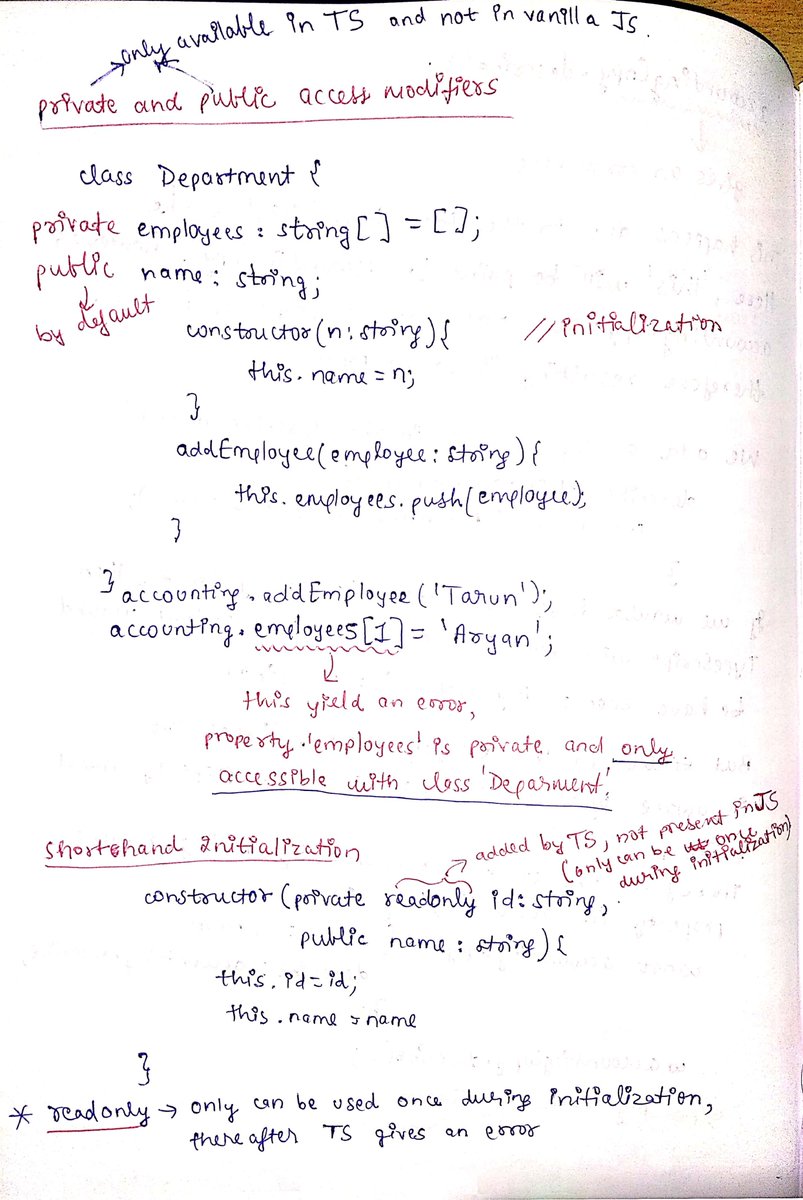 only available in TS and not in vanilla JS.
private and public access modifiers
class Department {
private employees : string[] = [];
public name : string;
by default
constructor(n : string){ //initialization
this.name = n;
}
addEmployee(employee : string){
this.employees.push(employee);
}
} accounting.addEmployee('Tarun');
accounting.employees[1] = 'Aryan';
this yield an error,
property 'employees' is private and only
accessible with class 'Deparment'.
Shorthand Initialization
added by TS, not present in JS
(only can be once
during initialization)
constructor(private readonly id: string,
public name : string){
this.id=id;
this.name = name
}
* readonly → only can be used once during initialization,
thereafter TS gives an error